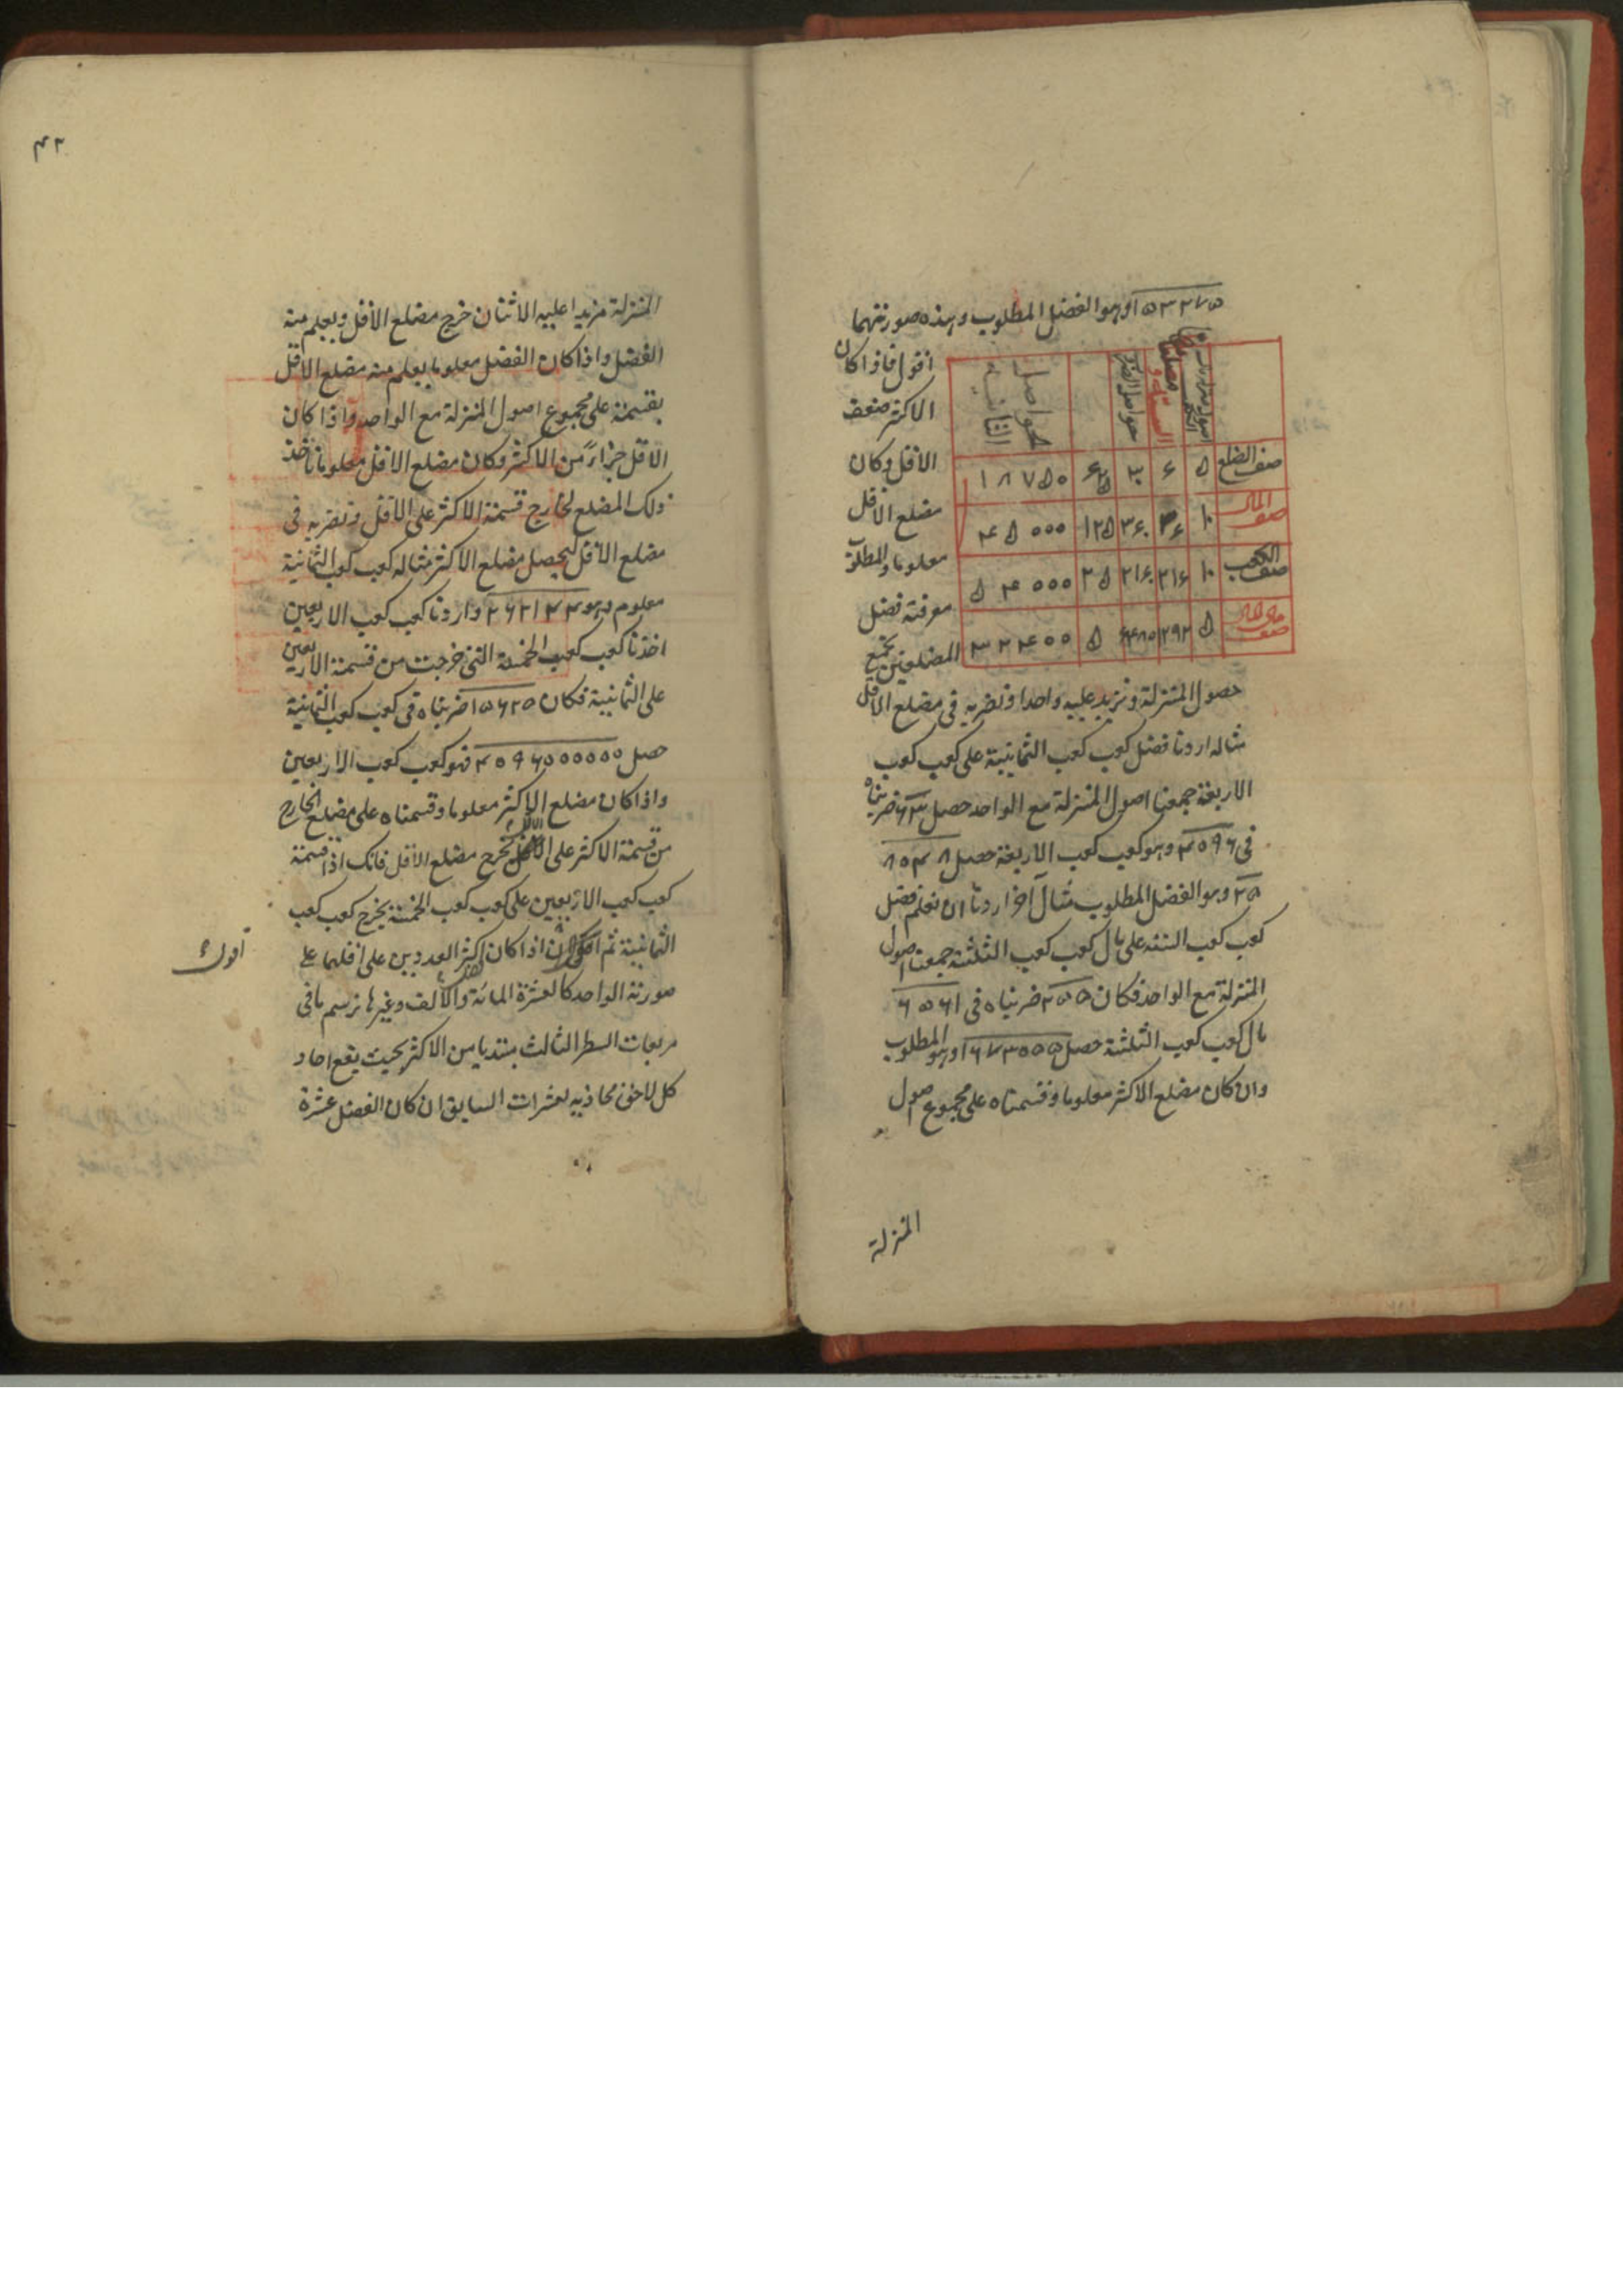 ۵۳۳۷۵ا وهو الفضل المطلوب وهذه صورتهما
اقول فاذا كان
الاكثر ضعف
الاقل وكان
مضلع الاقل
معلوما والمطلوب
معرفة فضل
المضلعين نجمع
حواصل الضرب
حواصل الثانية
صف الضلع ۵ ۶ ۳۰ ۶۲۵ ۱۸۷۵۰
صف المال ۱۰ ۳۶ ۳۶۰ ۱۲۵ ۴۵۰۰۰
صف الكعب ۱۰ ۲۱۶ ۲۱۶۰ ۲۵ ۵۴۰۰۰
صف مال المال ۵ ۱۲۹۶ ۶۴۸۰ ۵ ۳۲۴۰۰
اصول المنزلة ونزيد عليه واحدا ونضربه في مضلع الاقل
مثاله اردنا فضل كعب كعب الثمانية على كعب كعب
الاربعة جمعنا اصول المنزلة مع الواحد حصل ۶۳ ضربناه
في ۴۰۹۶ وهو كعب كعب الاربعة حصل ۲۵۸۰۴۸
وهو الفضل المطلوب مثال آخر اردنا ان نعلم فضل
كعب كعب الستة على مال كعب كعب الثلثة جمعنا اصول
المنزلة مع الواحد فكان ۲۵۵ ضربناه في ۶۵۶۱
مال كعب كعب الثلثة حصل ۱۶۷۳۰۵۵ وهو المطلوب
وان كان مضلع الاكثر معلوما وقسمناه على مجموع اصول
المنزلة
۴۲
المنزلة مزيدا عليه الاثنان خرج مضلع الاقل ويعلم منه
الفضل واذا كان الفضل معلوما يعلم منه مضلع الاقل
بقسمته على مجموع اصول المنزلة مع الواحد واذا كان
الاقل جزاءً من الاكثر وكان مضلع الاقل معلوما ناخذ
ذلك المضلع لخارج قسمة الاكثر على الاقل ونضربه في
مضلع الاقل ليحصل مضلع الاكثر مثاله كعب كعب الثمانية
معلوم وهو ۲۶۲۱۴۴ واردنا كعب كعب الاربعين
اخذنا كعب كعب الخمسة التي خرجت من قسمة الاربعين
على الثمانية فكان ۱۵۶۲۵ ضربناه في كعب كعب الثمانية
حصل ۴۰۹۶۰۰۰۰۰۰ فهو كعب كعب الاربعين
واذا كان مضلع الاكثر معلوما وقسمناه على مضلع الخارج
من قسمة الاكثر على الاقل يخرج مضلع الاقل فانك اذا قسمته
كعب كعب الاربعين على كعب كعب الخمسة يخرج كعب كعب
الثمانية ثم اذا كان اكثر العددين على اقلهما على
اقول
صورته الواحد كالعشرة المائة والالف وغيرها نرسم ما في
مربعات السطر الثالث مبتديا من الاكثر بحيث يقع احاد
كل لاحق محاذيه لعشرات السابق ان كان الفضل عشرة